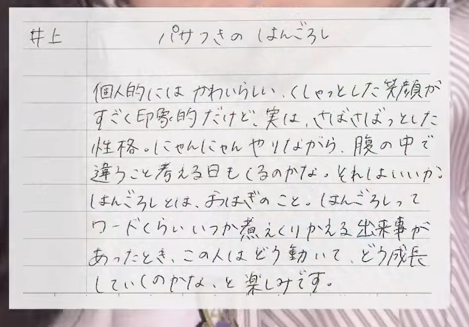 井上 パサつきの はんごろし
個人的には かわいらしい、くしゃっとした笑顔が
すごく印象的だけど、実は、さばさばっとした
性格。にゃんにゃん やりながら、腹の中で
違うこと考える日もくるのかな。それはいいか。
はんごろしとは、おはぎのこと。はんごろしって
ワードくらいいつか煮えくりかえる出来事が
あったとき、この人はどう動いて、どう成長
していくのかな、と楽しみです。